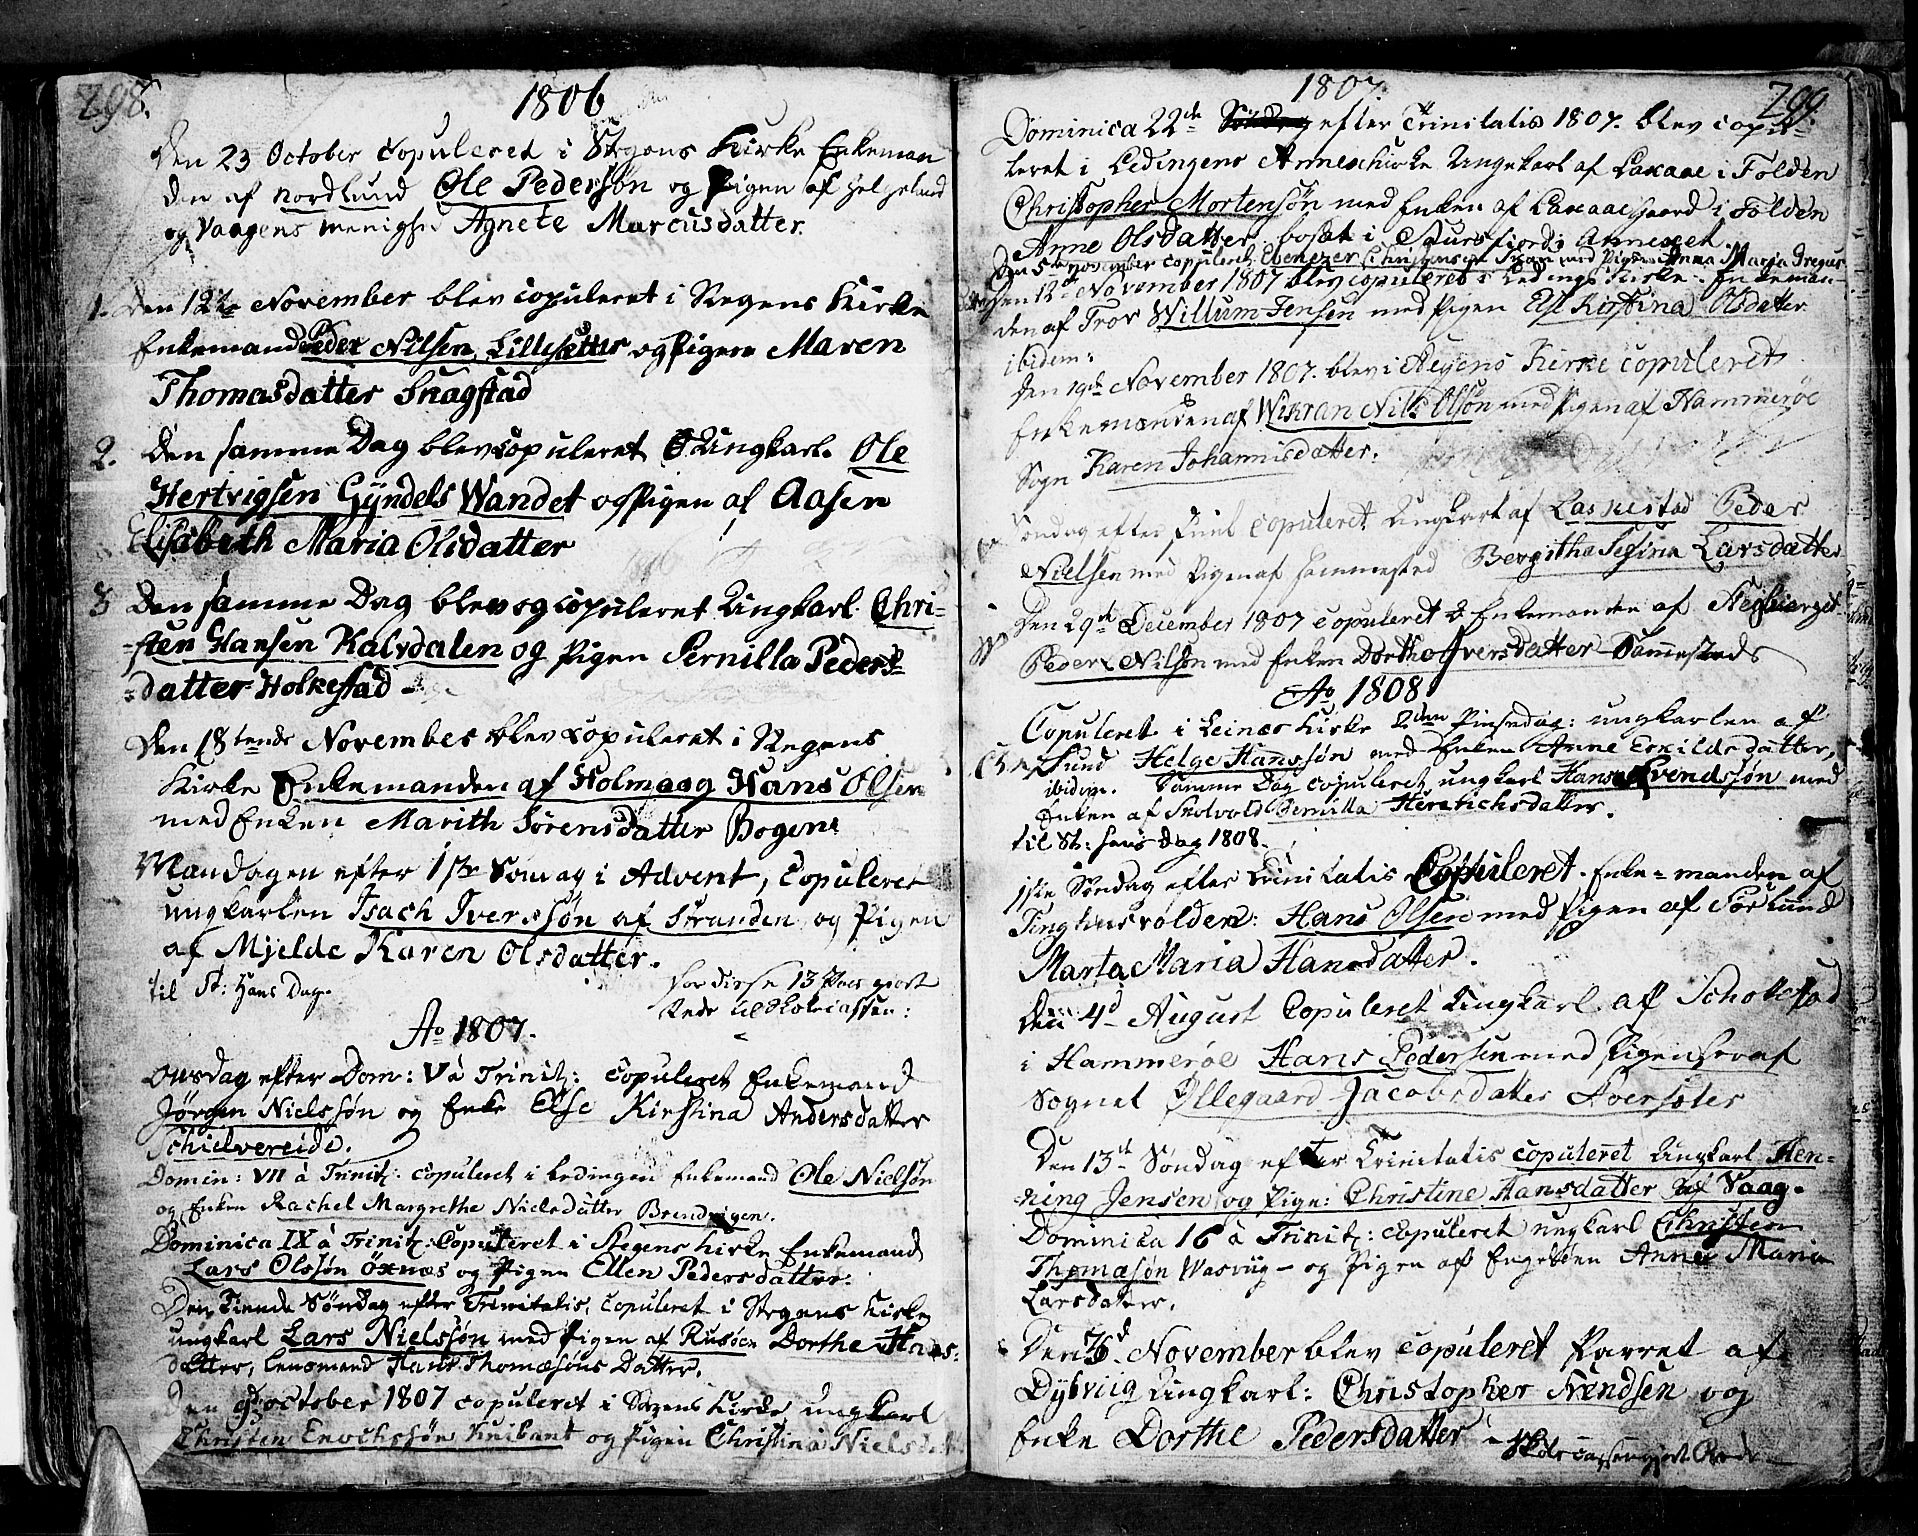 298.
1806
Den 23 October Copuleret i Stegens Kirke Enkeman
den af Nordlund Ole Pedersøn og Pigen af Helgeland
og Vaagens menighd Agnete Marcusdatter.
1. Den 12te November blev copuleret i Stegens Kirke
Enkemand Peder Nilsen Lillesætter og Pigen Maren
Thomasdatter Skagstad
2. Den samme Dag blev copuleret Ungkarl. Ole
Hertvigsen Gÿndels Wandet og Pigen af Aasen
Elisabeth Maria Olsdatter
3 Den samme Dag blev og copuleret Ungkarl. Chri-
sten Hansen Kalvdalen og Pigen Pernilla Peders-
datter Holkestad
Den 18tende November blev Copuleret i Stegens
Kirke Enkemanden af Holmaag Hans Olsen
med Enken Marith Sörensdatter Bogen
Mandagen efter 1ste Söndag i Advent, Copuleret
ungkarlen Isach Iversøn af Stranden og Pigen
af Mjelde Karen Olsdatter.
til St: Hans Dag.
for disse 13 Par giort
Rede til Skolecassen:
Ao 1807.
Onsdag efter Dom: V à Trinit: Copuleret Enkemand
Jørgen Nielssøn og Enke Else Kirstina Andersdatter
Schielvereide.
Domin: VII à Trinit: Copuleret i Lødingen Enkemand Ole Nielsøn
og Enken Rachel Margrethe Nielsdatter Brendvigen.
Dominica IX à Trinit: Copuleret i Stegens Kirke Enkemand
Lars Olssøn Öxnæs og Pigen Ellen Pedersdatter.
Den Tiende Søndag efter Trinitatis, Copuleret i Stegens Kirke
ungkarl Lars Nielssøn med Pigen af Rusöen Dorthe Hans-
datter, Lensmand Hans Thomæsöns Datter.
Den 9de October 1807 copuleret i Stegens Kirke ungkarl
Christen Enochssøn Knibant og Pigen Christina Nielsdatt
299.
1807.
Dominica 22de efter Trinitatis 1807. blev copu-
leret i Ledingens Annexkirke Ungekarl af Laxaae i Folden
Christopher Mortensøn med Enken af Laxaae gaard i Folden
Anne Olsdatter, bosat i Saursfiord i Annexet.
Den 5te November copuleret Ebenezer Christensen med Pigen Anna Maria Dregus
Den 12te November 1807 blev copuleret i Ledings Kirke. Enkeman-
den af Tror Willum Jensen med Pigen Else Kirstina Olsdatter
ibidem:
Den 19de November 1807. blev i Stegens Kirke copuleret
Enkemanden af Wikran Nils Olsøn med Pigen af Hammeröe
Sogn Karen Johannisdatter.
Söndag efter Juul Copuleret Ungkarl af Laskestad Peder
Nielsen med Pigen af sammested Bergitha Sefina Larsdatter
Den 29de December 1807 copuleret Enkemanden af
Peder Nilsøn med Enken Dorthe Iversdatter Sammesteds
Ao 1808
Copuleret i Leines Kirke 2den Pinsedag: ungkarlen af
Sund Helge Hanssøn med Enken Anne Eskildsdatter,
ibidem. Samme Dag copuleret ungkarl Hans Svendssøn med
Enken af Skotvold Pernilla Henrichsdatter.
til St: Hans Dag 1808.
1ste Söndag efter Trinitatis Copuleret. Enke-manden af
Tinghusvolden: Hans Olsen med Pigen af Sörlund
Marta Maria Hansdatter.
Den 4d August Copuleret Ungkarl af
i Hammeröe Hans Pedersen med Pigen her af
Sognet Øllegaard Jacobsdatter
Den 13de Søndag efter Trinitatis copuleret Ungkarl Hen-
ning Jensen og Pige: Christine Hansdatter af Vaag.
Dominica 16 à Trinit: copuleret ungkarl Christen
Thomæsøn Wasviig - og Pigen af Engeløen Anne Maria
Larsdatter.
Den 6d November blev copuleret Parret af
Dybviig Ungkarl: Christopher Svendsen og
Enke Dorthe Pedersdatter
Skolecassen giort Rede